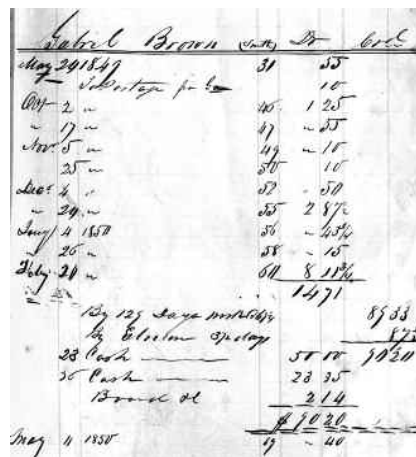 Gabriel Brown (Smith) Dr Cred
May 24 1849 31 55
To Postage for 10
Oct 2 " 45 1 25
" 17 " 47 - 55
Nov 5 " 49 - 10
25 " 50 10
Dec 4 " 52 . 50
" 24 " 55 2 87½
Jany 4 1850 56 - 43¾
" 26 " 58 - 15
Feby 20 " 60 8 11¾
1471
By 129 Days 89 33
By days 87½
23 Cash 50 00 90 20
36 Cash 23 35
Board 2 14
$ 90 20
May 11 1850 19 - 40